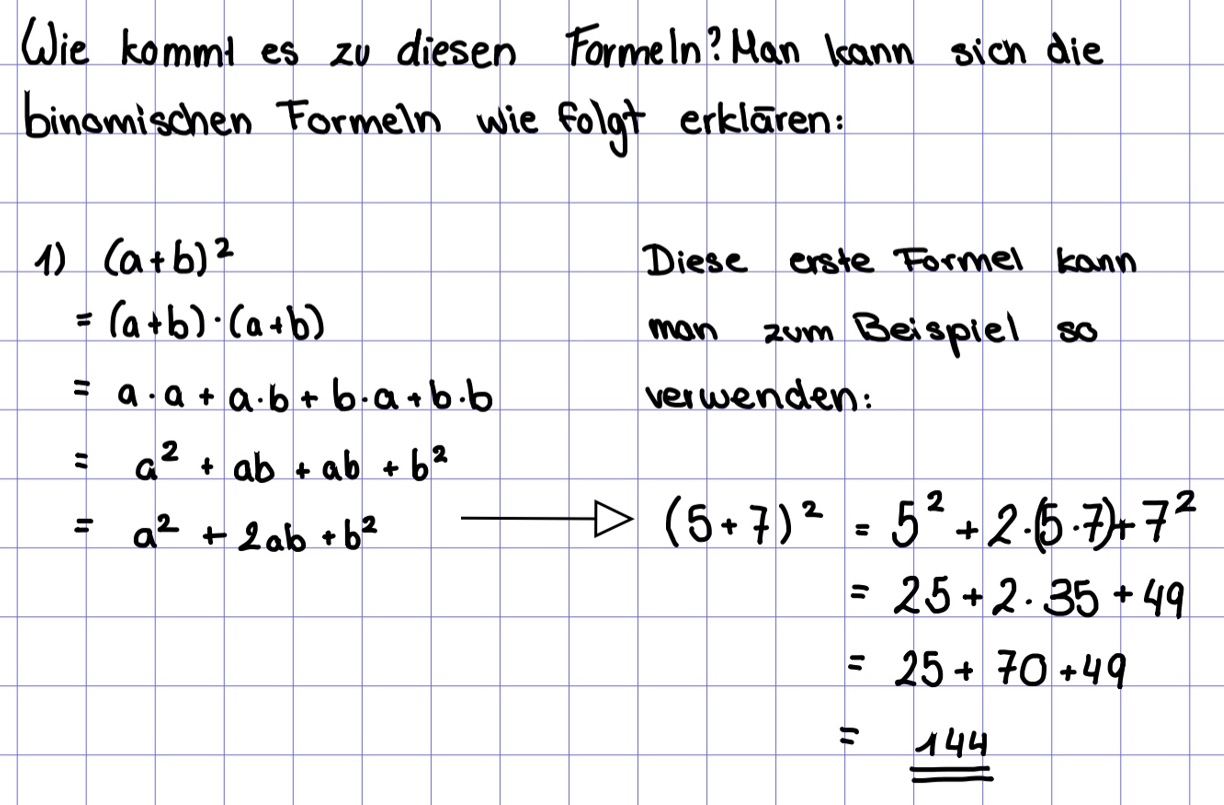 Wie kommt es zu diesen Formeln? Man kann sich die
binomischen Formeln wie folgt erklären:
1) (a+b)²
= (a+b)·(a+b)
= a·a + a·b + b·a + b·b
= a² + ab + ab + b²
= a² + 2ab + b²
Diese erste Formel kann
man zum Beispiel so
verwenden:
(5+7)² = 5² + 2·(5·7) + 7²
= 25 + 2·35 + 49
= 25 + 70 + 49
= 144